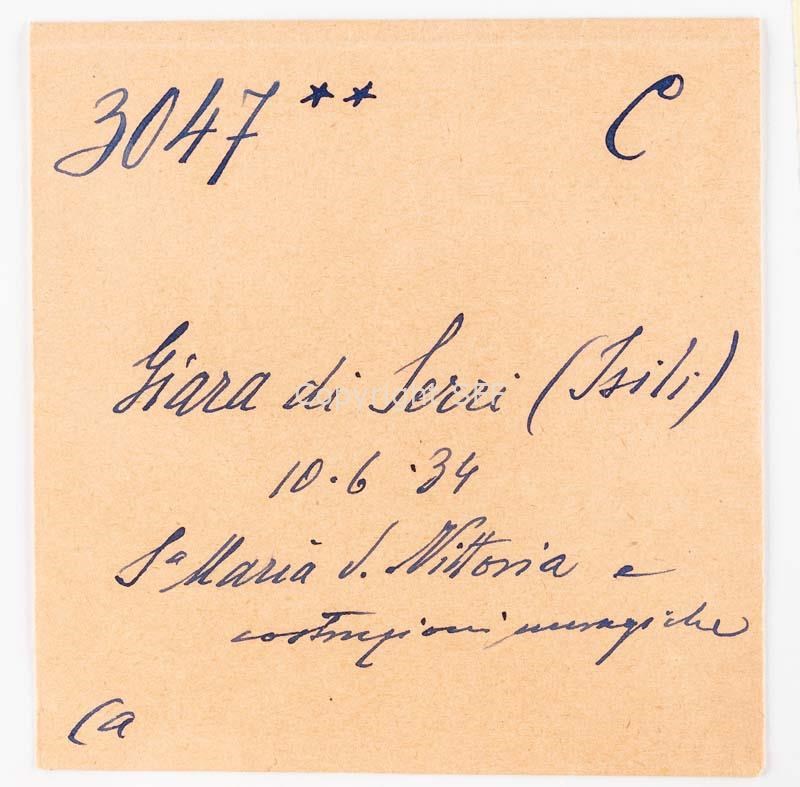 3047 ** C
Giara di Serri (Isili)
10.6.34
Sª Maria d. Vittoria e
costruzioni nuragiche
Ca